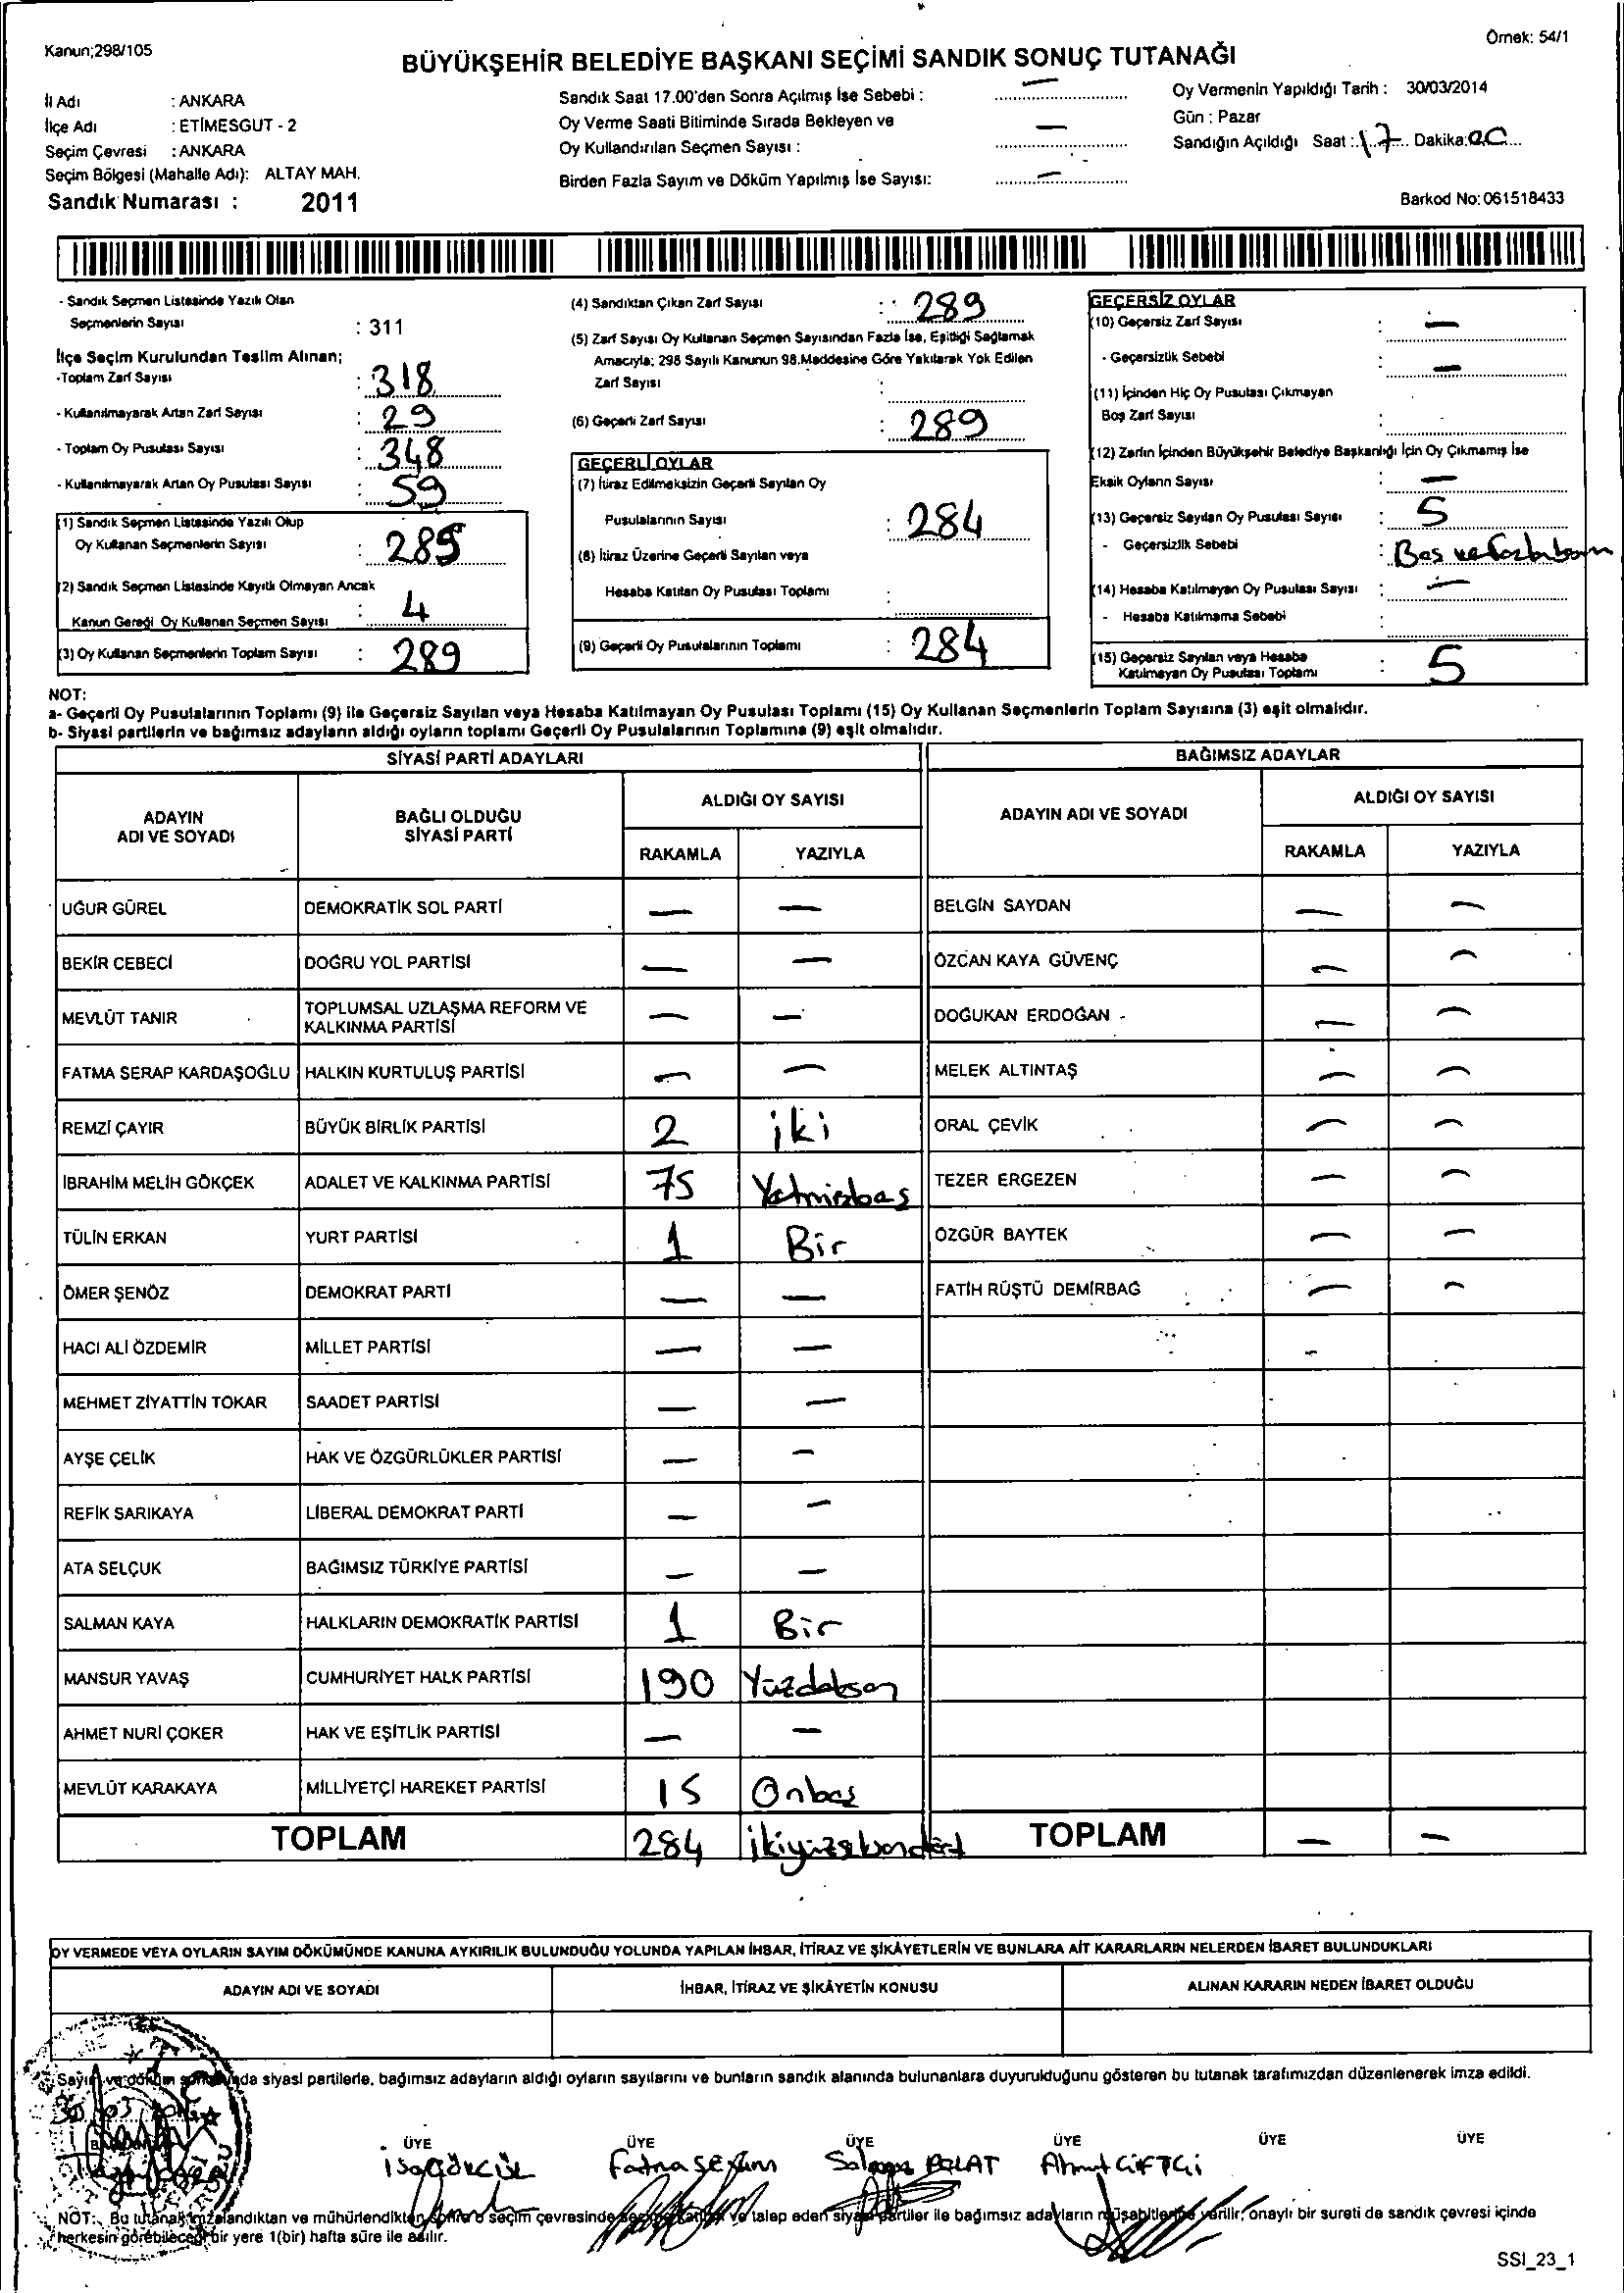 Kanun;298/105
Örnek: 54/1
BÜYÜKŞEHİR BELEDİYE BAŞKANI SEÇİMİ SANDIK SONUÇ TUTANAĞI
İl Adı : ANKARA
İlçe Adı : ETİMESGUT - 2
Seçim Çevresi : ANKARA
Seçim Bölgesi (Mahalle Adı): ALTAY MAH.
Sandık Numarası : 2011
Sandık Saat 17.00'den Sonra Açılmış İse Sebebi : —
Oy Verme Saati Bitiminde Sırada Bekleyen ve
Oy Kullandırılan Seçmen Sayısı : —
Birden Fazla Sayım ve Döküm Yapılmış İse Sayısı: —
Oy Vermenin Yapıldığı Tarih : 30/03/2014
Gün : Pazar
Sandığın Açıldığı Saat : 17 Dakika: 00
Barkod No: 061518433
- Sandık Seçmen Listesinde Yazılı Olan
Seçmenlerin Sayısı : 311
İlçe Seçim Kurulundan Teslim Alınan;
-Toplam Zarf Sayısı : 318
- Kullanılmayarak Artan Zarf Sayısı : 29
- Toplam Oy Pusulası Sayısı : 348
- Kullanılmayarak Artan Oy Pusulası Sayısı : 59
(1) Sandık Seçmen Listesinde Yazılı Olup
Oy Kullanan Seçmenlerin Sayısı : 285
(2) Sandık Seçmen Listesinde Kayıtlı Olmayan Ancak
Kanun Gereği Oy Kullanan Seçmen Sayısı : 4
(3) Oy Kullanan Seçmenlerin Toplam Sayısı : 289
(4) Sandıktan Çıkan Zarf Sayısı : 289
(5) Zarf Sayısı Oy Kullanan Seçmen Sayısından Fazla İse, Eşitliği Sağlamak
Amacıyla; 298 Sayılı Kanunun 98.Maddesine Göre Yakılarak Yok Edilen
Zarf Sayısı :
(6) Geçerli Zarf Sayısı : 289
GEÇERLİ OYLAR
(7) İtiraz Edilmeksizin Geçerli Sayılan Oy
Pusulalarının Sayısı : 284
(8) İtiraz Üzerine Geçerli Sayılan veya
Hesaba Katılan Oy Pusulası Toplamı :
(9) Geçerli Oy Pusulalarının Toplamı : 284
GEÇERSİZ OYLAR
(10) Geçersiz Zarf Sayısı : —
- Geçersizlik Sebebi : —
(11) İçinden Hiç Oy Pusulası Çıkmayan
Boş Zarf Sayısı :
(12) Zarfın İçinden Büyükşehir Belediye Başkanlığı İçin Oy Çıkmamış İse
Eksik Oyların Sayısı : —
(13) Geçersiz Sayılan Oy Pusulası Sayısı : 5
- Geçersizlik Sebebi : Boş ve
(14) Hesaba Katılmayan Oy Pusulası Sayısı : —
- Hesaba Katılmama Sebebi :
(15) Geçersiz Sayılan veya Hesaba
Katılmayan Oy Pusulası Toplamı : 5
NOT:
a- Geçerli Oy Pusulalarının Toplamı (9) ile Geçersiz Sayılan veya Hesaba Katılmayan Oy Pusulası Toplamı (15) Oy Kullanan Seçmenlerin Toplam Sayısına (3) eşit olmalıdır.
b- Siyasi partilerin ve bağımsız adayların aldığı oyların toplamı Geçerli Oy Pusulalarının Toplamına (9) eşit olmalıdır.
SİYASİ PARTİ ADAYLARI
BAĞIMSIZ ADAYLAR
ADAYIN ADI VE SOYADI
BAĞLI OLDUĞU SİYASİ PARTİ
ALDIĞI OY SAYISI
RAKAMLA YAZIYLA
ADAYIN ADI VE SOYADI
ALDIĞI OY SAYISI
RAKAMLA YAZIYLA
UĞUR GÜREL DEMOKRATİK SOL PARTİ — — BELGİN SAYDAN — —
BEKİR CEBECİ DOĞRU YOL PARTİSİ — — ÖZCAN KAYA GÜVENÇ — —
MEVLÜT TANIR TOPLUMSAL UZLAŞMA REFORM VE KALKINMA PARTİSİ — — DOĞUKAN ERDOĞAN — —
FATMA SERAP KARDAŞOĞLU HALKIN KURTULUŞ PARTİSİ — — MELEK ALTINTAŞ — —
REMZİ ÇAYIR BÜYÜK BİRLİK PARTİSİ 2 iki ORAL ÇEVİK — —
İBRAHİM MELİH GÖKÇEK ADALET VE KALKINMA PARTİSİ 75 Yetmişbeş TEZER ERGEZEN — —
TÜLİN ERKAN YURT PARTİSİ 1 Bir ÖZGÜR BAYTEK — —
ÖMER ŞENÖZ DEMOKRAT PARTİ — — FATİH RÜŞTÜ DEMİRBAĞ — —
HACI ALİ ÖZDEMİR MİLLET PARTİSİ — —
MEHMET ZİYATTİN TOKAR SAADET PARTİSİ — —
AYŞE ÇELİK HAK VE ÖZGÜRLÜKLER PARTİSİ — —
REFİK SARIKAYA LİBERAL DEMOKRAT PARTİ — —
ATA SELÇUK BAĞIMSIZ TÜRKİYE PARTİSİ — —
SALMAN KAYA HALKLARIN DEMOKRATİK PARTİSİ 1 Bir
MANSUR YAVAŞ CUMHURİYET HALK PARTİSİ 190 Yüzdoksan
AHMET NURİ ÇOKER HAK VE EŞİTLİK PARTİSİ — —
MEVLÜT KARAKAYA MİLLİYETÇİ HAREKET PARTİSİ 15 Onbeş
TOPLAM 284 ikiyüzseksendört TOPLAM — —
OY VERMEDE VEYA OYLARIN SAYIM DÖKÜMÜNDE KANUNA AYKIRILIK BULUNDUĞU YOLUNDA YAPILAN İHBAR, İTİRAZ VE ŞİKÂYETLERİN VE BUNLARA AİT KARARLARIN NELERDEN İBARET BULUNDUKLARI
ADAYIN ADI VE SOYADI İHBAR, İTİRAZ VE ŞİKÂYETİN KONUSU ALINAN KARARIN NEDEN İBARET OLDUĞU
Sayım ve döküm sonucunda siyasi partilerle, bağımsız adayların aldığı oyların sayılarını ve bunların sandık alanında bulunanlara duyurulduğunu gösteren bu tutanak tarafımızdan düzenlenerek imza edildi.
30 03
ÜYE ÜYE ÜYE ÜYE ÜYE ÜYE
İsa Fatma POLAT Ahmet ÇİFTÇİ
NOT: Bu tutanak imzalandıktan ve mühürlendikten sonra o seçim çevresinde seçime katılan ve talep eden siyasi partiler ile bağımsız adayların müşahitlerine verilir, onaylı bir sureti de sandık çevresi içinde
herkesin görebileceği bir yere 1(bir) hafta süre ile asılır.
SSI_23_1